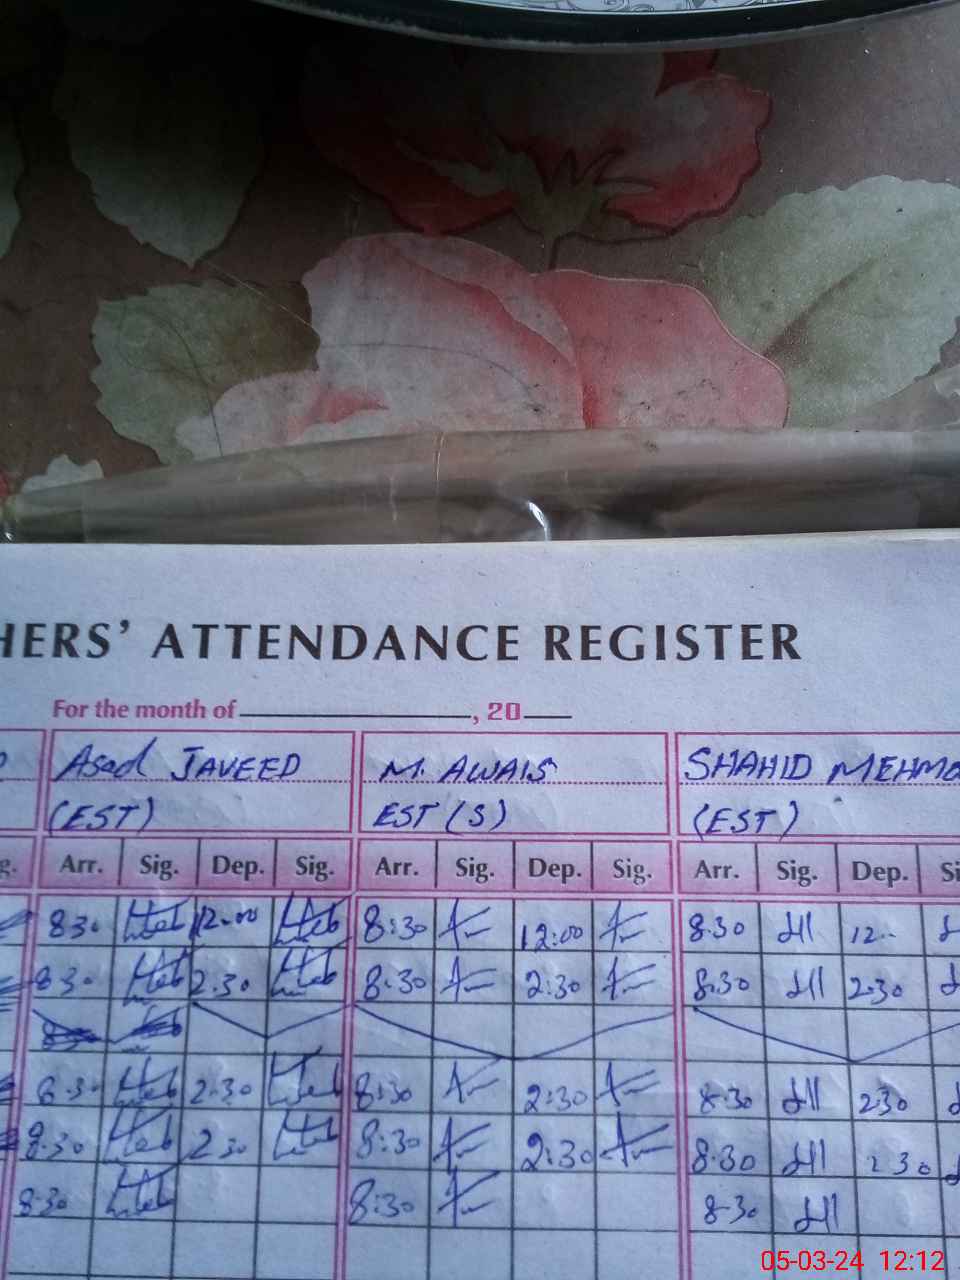 HERS' ATTENDANCE REGISTER
For the month of , 20
Asad JAVEED M. AWAIS SHAHID MEHMO
(EST) EST (S) (EST)
g. Arr. Sig. Dep. Sig. Arr. Sig. Dep. Sig. Arr. Sig. Dep. Si
8 30 12.00 8:30 12:00 8.30 12.-
8 30 2.30 8:30 2:30 8.30 2.30
8.30 2.30 8:30 2:30 8.30 2.30
8.30 2.30 8:30 2:30 8.30 2 30
8.30 8:30 8.30
05-03-24 12:12